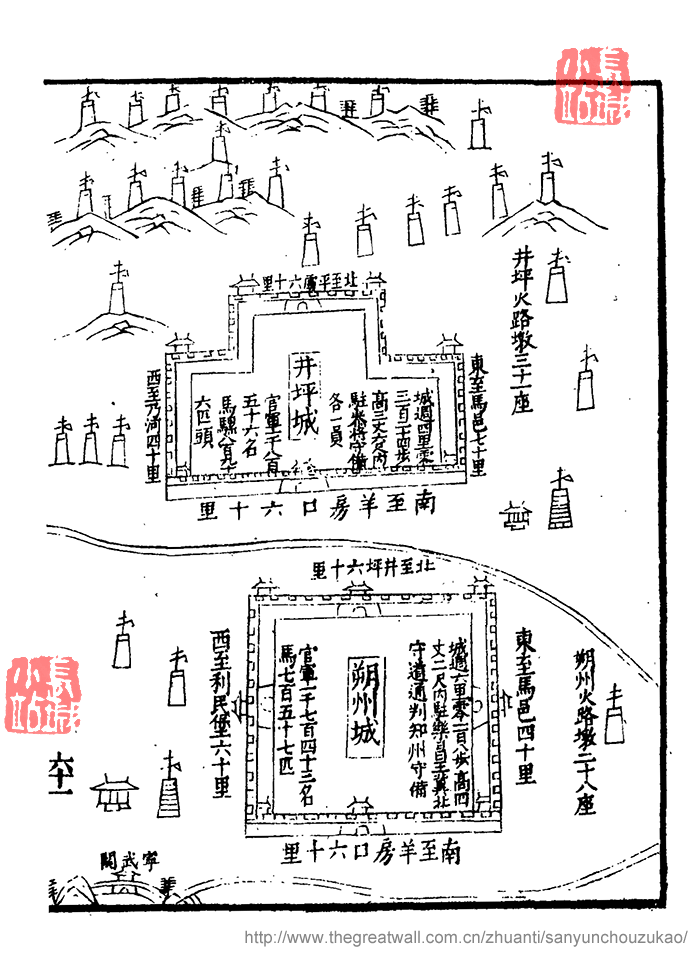 長城
小站
井坪火路墩三十一座
北至平虜六十里
東至馬邑七十里
井坪城
城週四里零
三百二十四步
高三丈六尺內
駐參將守備
各一員
官軍一千八百
五十六名
馬騾八百九十
六匹頭
西至乃河四十里
南至羊房口六十里
北至井坪六十里
朔州火路墩二十八座
東至馬邑四十里
朔州城
城週六里零一百八步高四
丈二尺內駐樂昌王冀北
守道通判知州守備
官軍一千七百四十三名
馬七百五十七匹
西至利民堡六十里
南至羊房口六十里
寧武關
六十一
長城
小站
http://www.thegreatwall.com.cn/zhuanti/sanyunchouzukao/